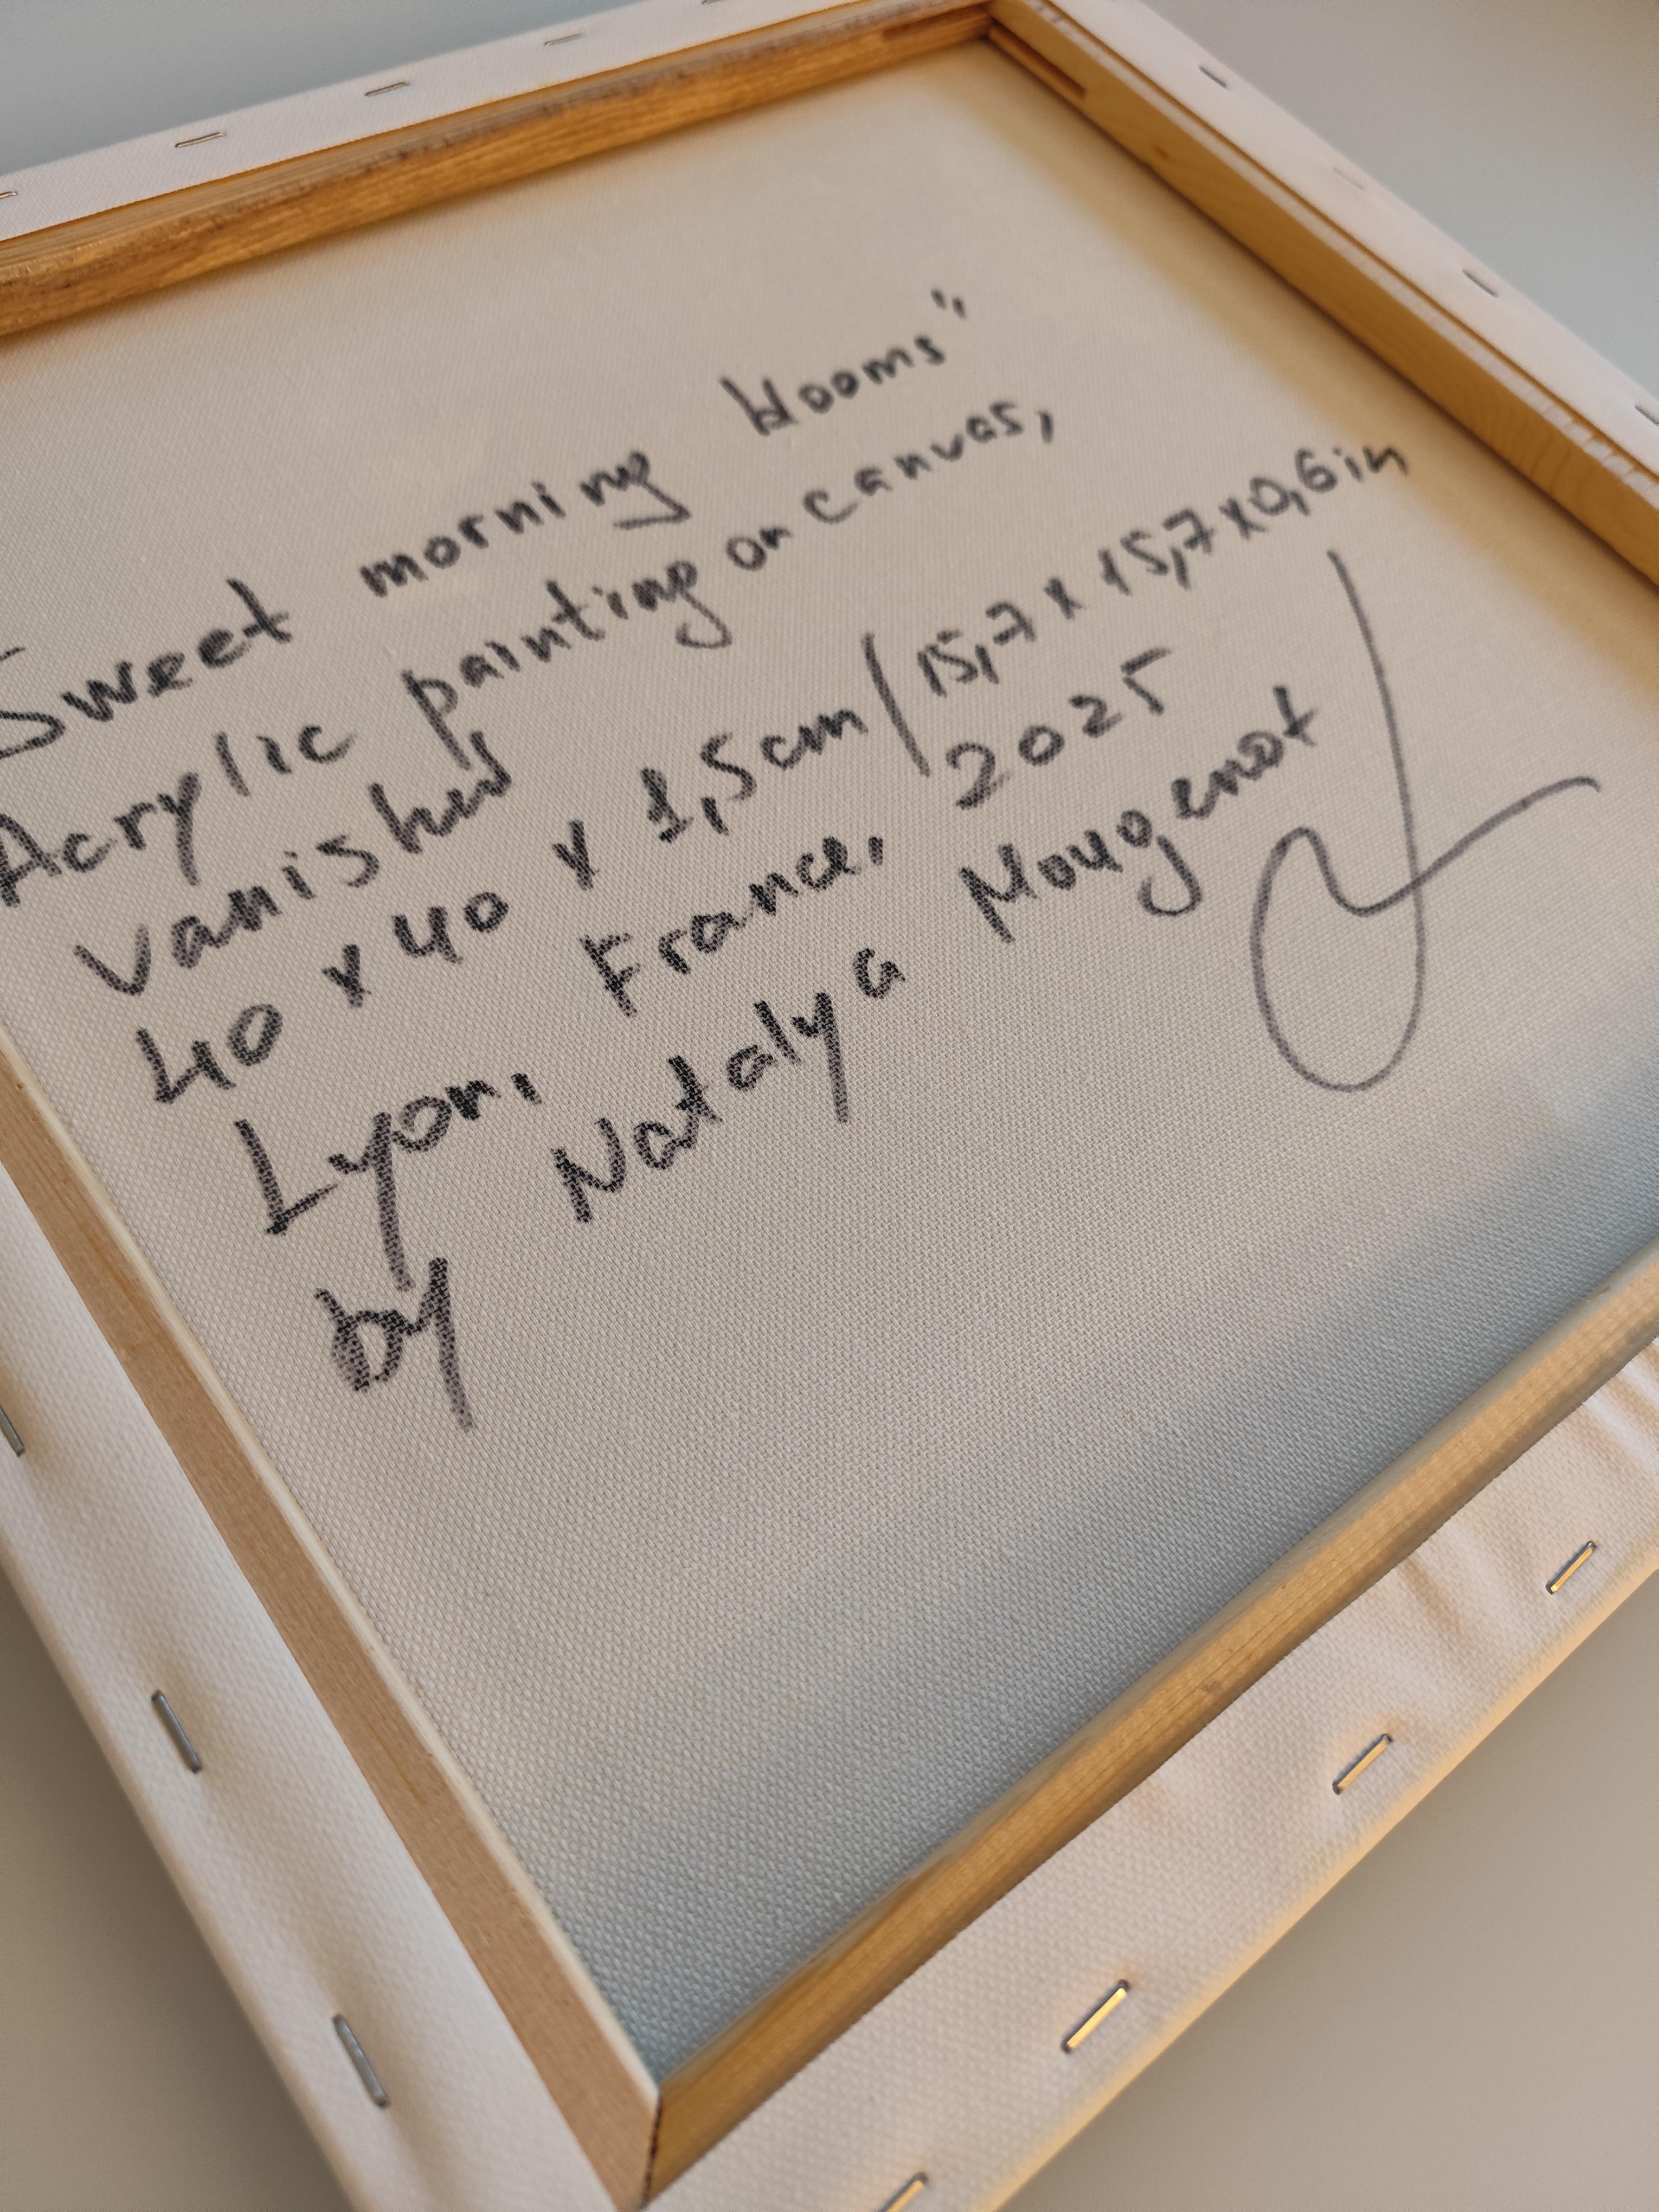 Sweet morning blooms"
Acrylic painting on canvas,
vanished
40 x 40 x 1,5cm/15,7 x 15,7 x 0,6in
Lyon, France, 2025
by Natalya Mougenot